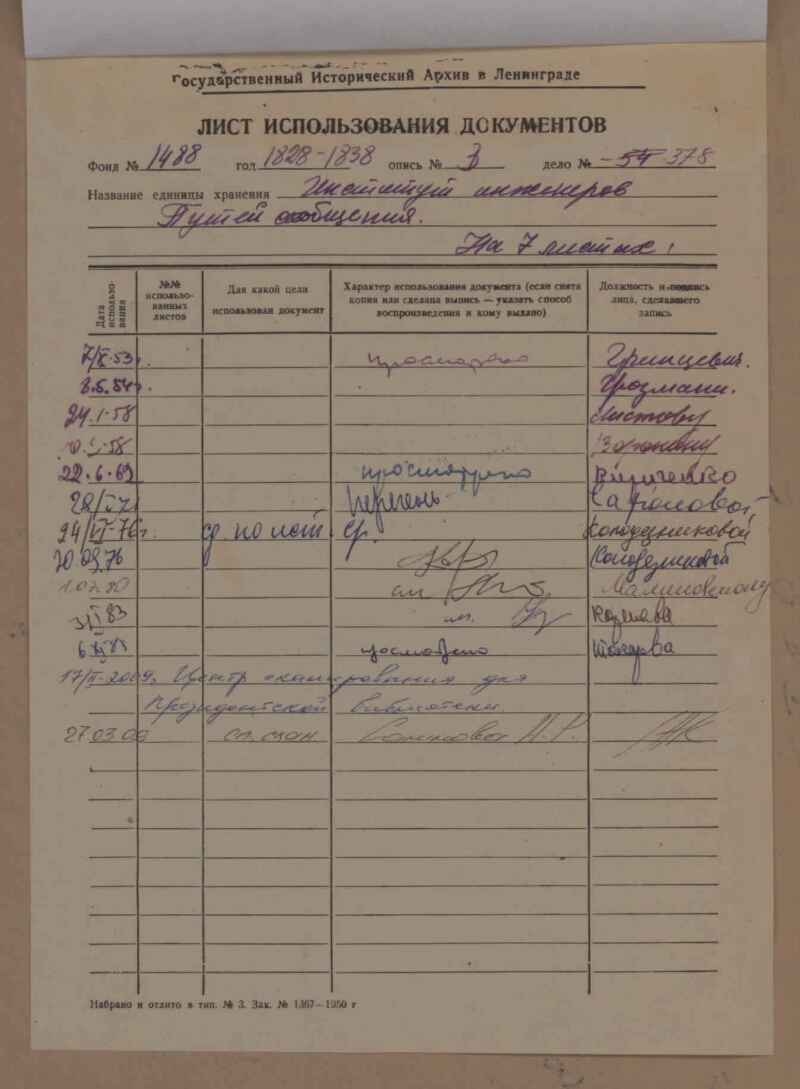 Государственный Исторический Архив в Ленинграде
ЛИСТ ИСПОЛЬЗОВАНИЯ ДОКУМЕНТОВ
Фонд № 1488 год 1828-1838 опись № 3 дело № 378
Название единицы хранения Институт инженеров
Путей сообщения.
На 7 листах
Дата использования
№№ использованных листов
Для какой цели использован документ
Характер использования документа (если снята копия или сделана выпись — указать способ воспроизведения и кому выдано)
Должность и подпись лица, сделавшего запись
7/X-53г. просмотрено Гринцевич.
8.5.54г. Грозманн.
24.1.58 Листову
58
22.6.69 просмотрено Кириченко
перечень
24/VI-76г. Колодезниковой
20.09.76 Колодезниковой
1.07.80 Малиновскому
83
просмотрено
17/II-2009г Центр сканирования для
Президентской библиотеки
27.03.09
Набрано и отлито в тип. № 3. Зак. № 1367—1950 г